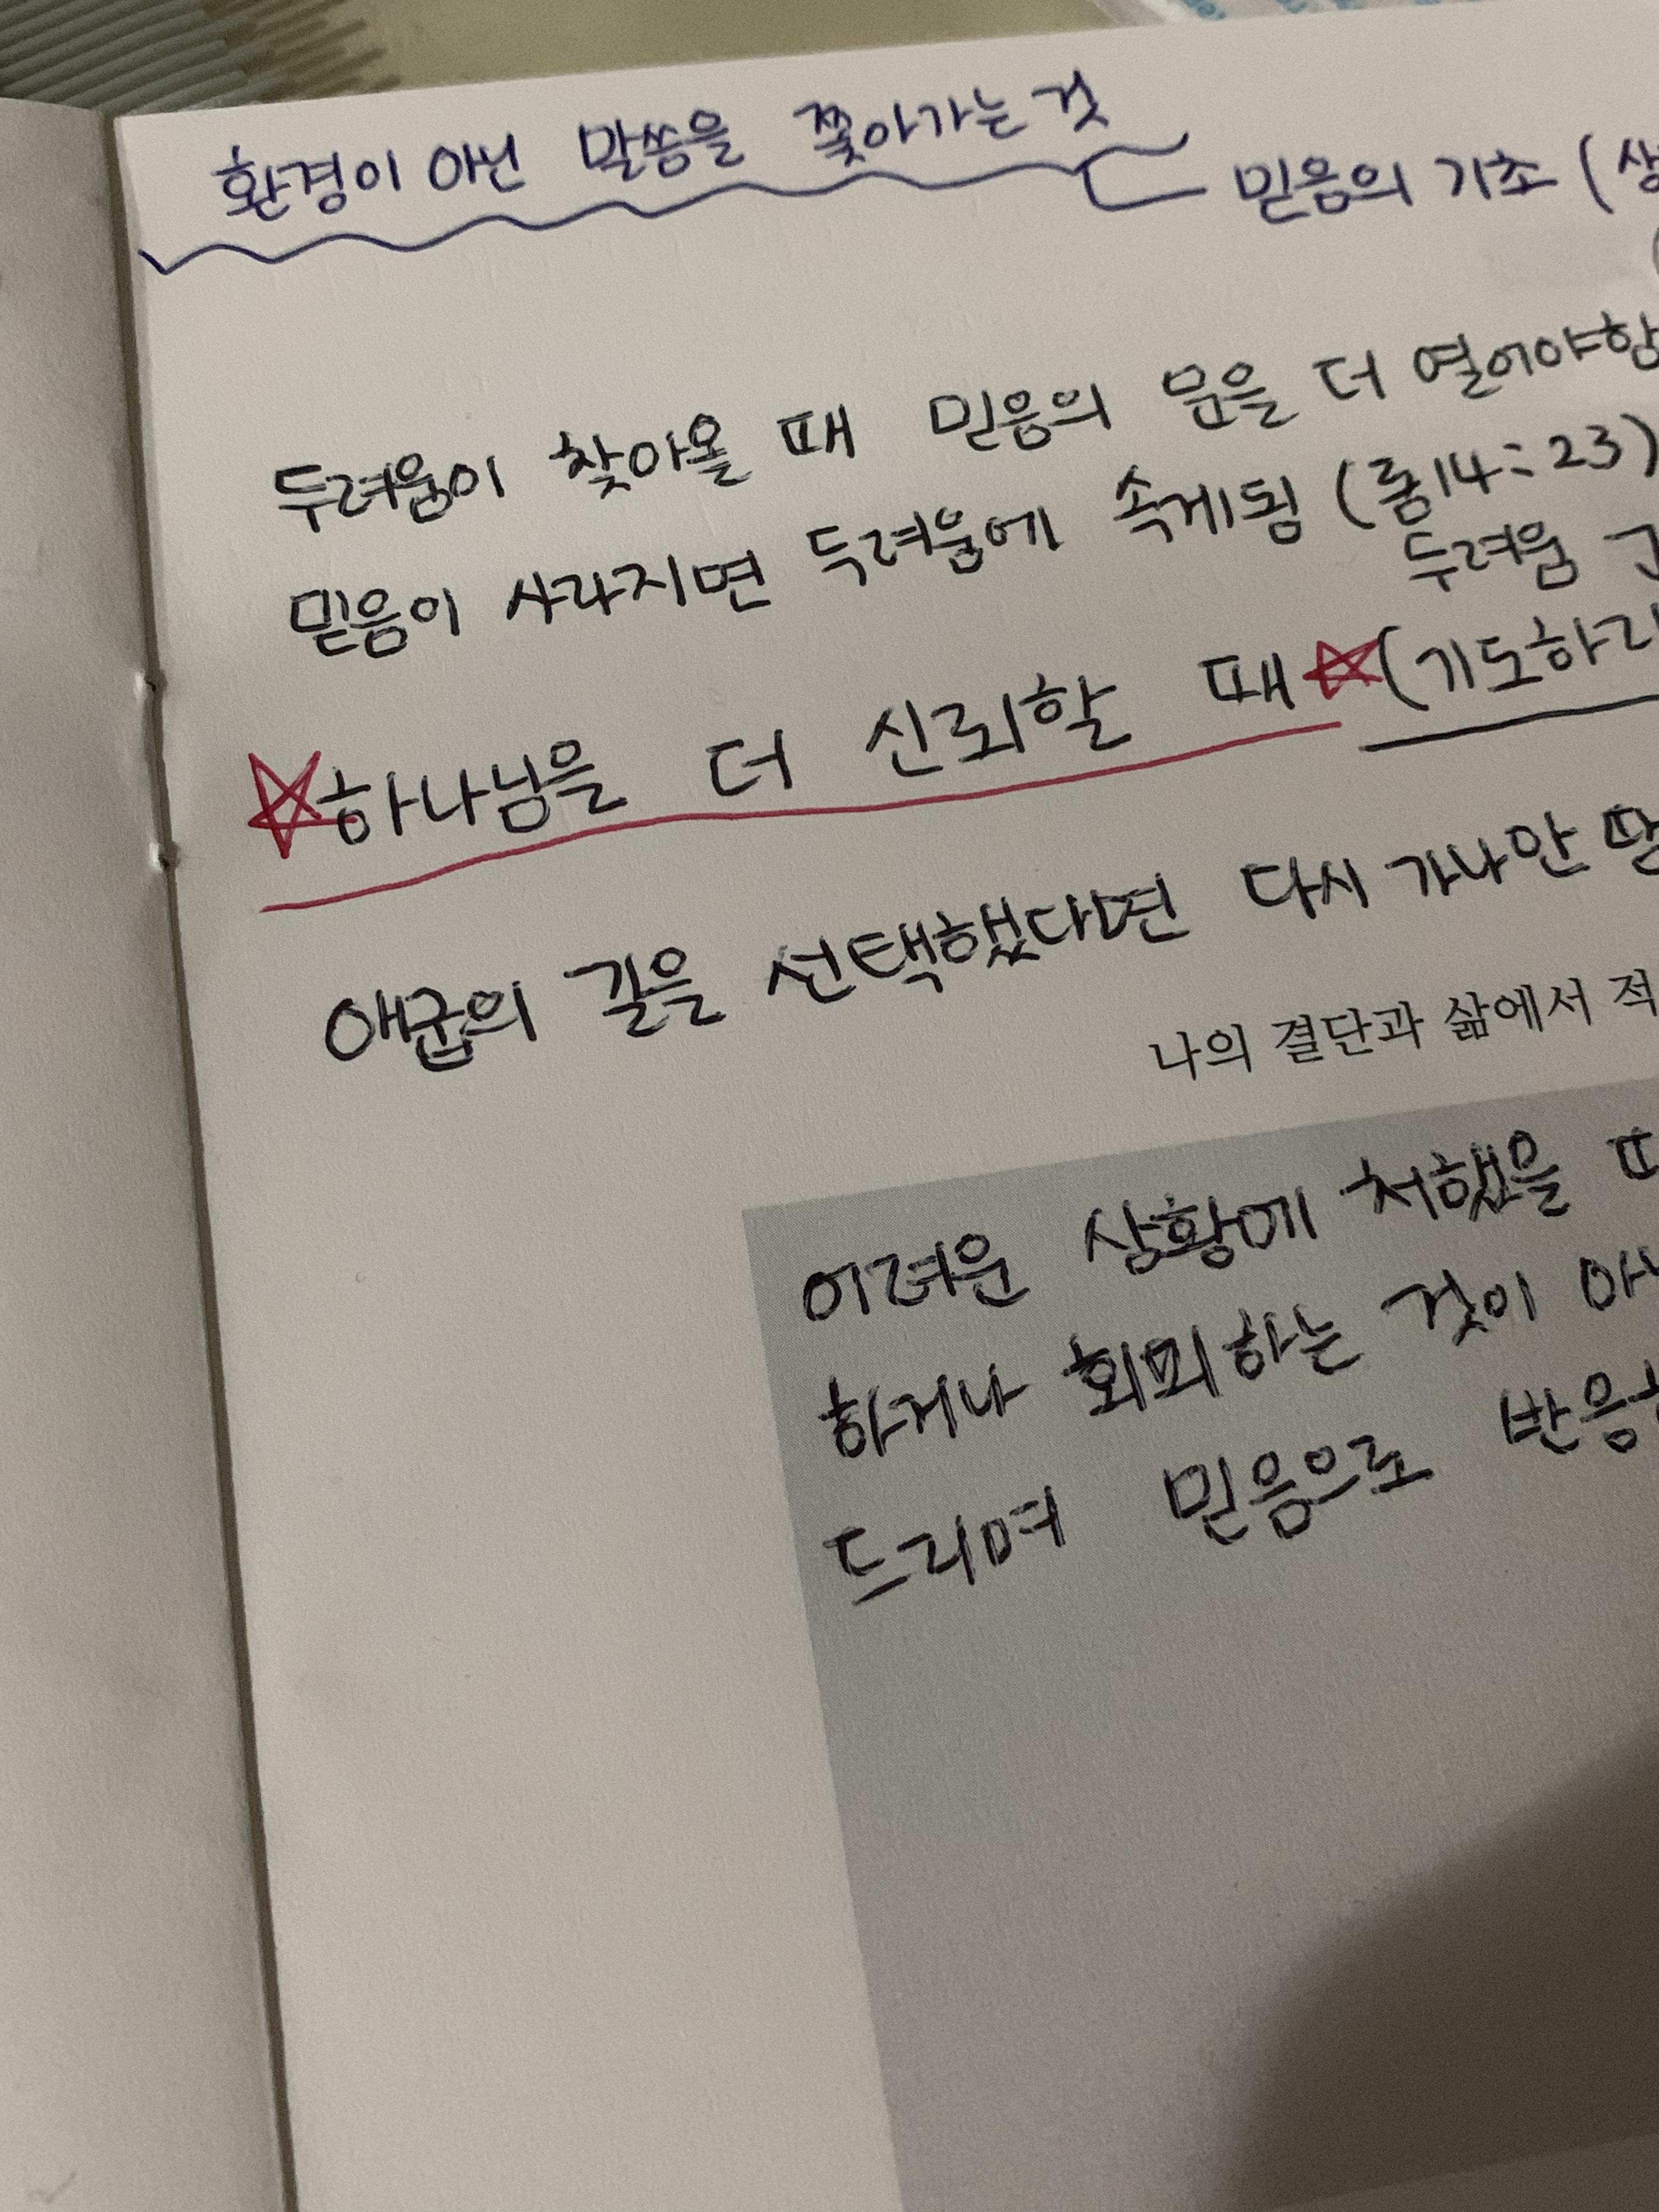 환경이 아닌 말씀을 쫓아가는 것
믿음의 기초 (
두려움이 찾아올 때 믿음의 문을 더 열어야함
믿음이 사라지면 두려움에 속게됨 (롬14:23)
두려움
☆하나님을 더 신뢰할 때☆(기도하라
애굽의 길을 선택했다면 다시 가나안 땅
나의 결단과 삶에서 적
어려운 상황에 처했을
하거나 회피하는 것이
드리며 믿음으로 반응